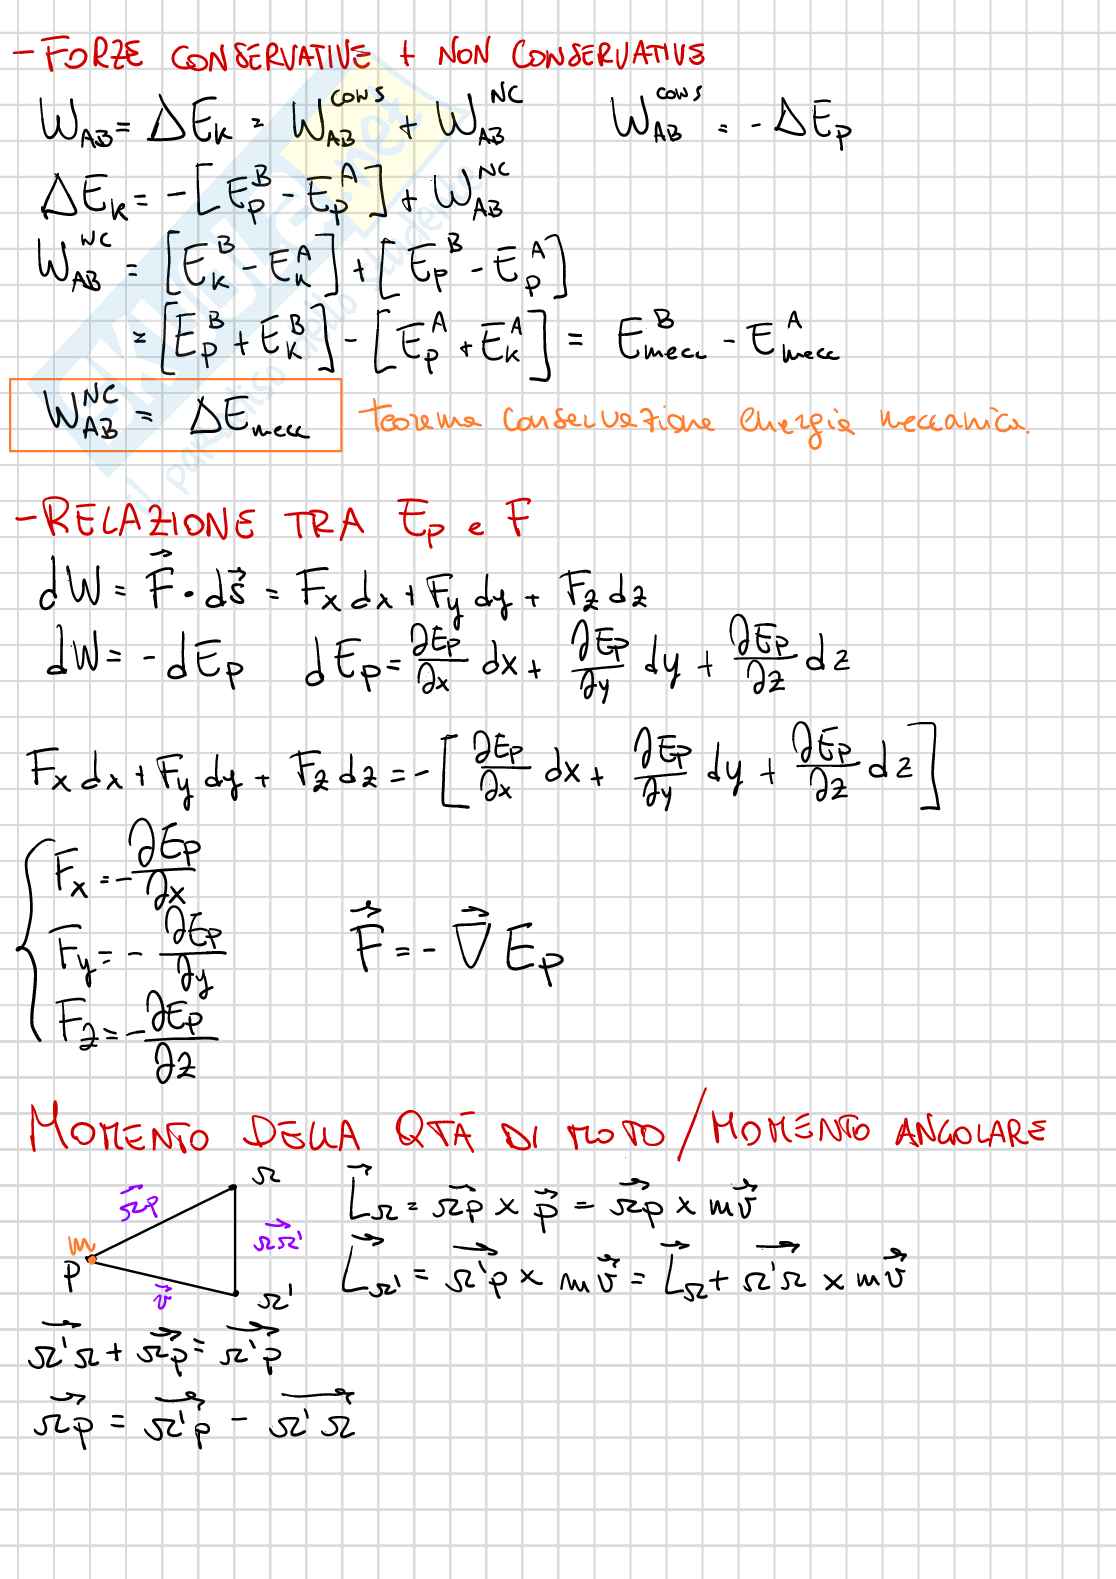 - FORZE CONSERVATIVE + NON CONSERVATIVE
W_AB = ΔE_K = W_AB^CONS + W_AB^NC    W_AB^CONS = - ΔE_p
ΔE_K = - [E_p^B - E_p^A] + W_AB^NC
W_AB^NC = [E_K^B - E_K^A] + [E_p^B - E_p^A]
= [E_p^B + E_K^B] - [E_p^A + E_K^A] = E_mecc^B - E_mecc^A
W_AB^NC = ΔE_mecc    teorema conservazione energia meccanica.
- RELAZIONE TRA E_p e F
dW = F⃗ · ds⃗ = F_x dx + F_y dy + F_z dz
dW = - dE_p    dE_p = ∂E_p/∂x dx + ∂E_p/∂y dy + ∂E_p/∂z dz
F_x dx + F_y dy + F_z dz = - [∂E_p/∂x dx + ∂E_p/∂y dy + ∂E_p/∂z dz]
F_x = - ∂E_p/∂x
F_y = - ∂E_p/∂y    F⃗ = - ∇⃗ E_p
F_z = - ∂E_p/∂z
MOMENTO DELLA QTÀ DI MOTO / MOMENTO ANGOLARE
Ω
ΩP→    L⃗_Ω = Ωp→ × p⃗ = Ωp→ × mv⃗
m    ΩΩ'→
P    L⃗_Ω' = Ω'p→ × mv⃗ = L⃗_Ω + Ω'Ω→ × mv⃗
v⃗    Ω'
Ω'Ω→ + Ωp→ = Ω'p→
Ωp→ = Ω'p→ - Ω'Ω→